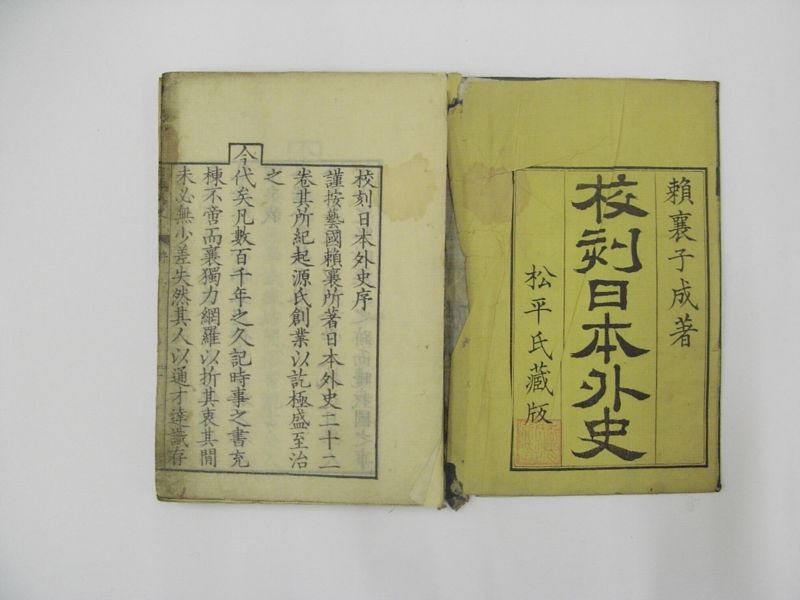 賴襄子成著
校刻日本外史
松平氏藏版
校刻日本外史序
謹按藝國賴襄所著日本外史二十二
卷其所紀起源氏創業以訖極盛至治
之
今代矣凡數百千年之久記時事之書充
棟不啻而襄獨力網羅以折其衷其間
未必無少差失然其人以通才達識存